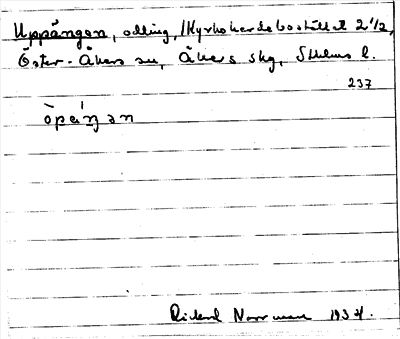 Uppängen, odling, Kyrkoherdebostället 2 1/2,
Öster-Åkers sn, Åkers skg, Sthlms l.
237
òpeŋ́ən
Rickard Norrman 1934.